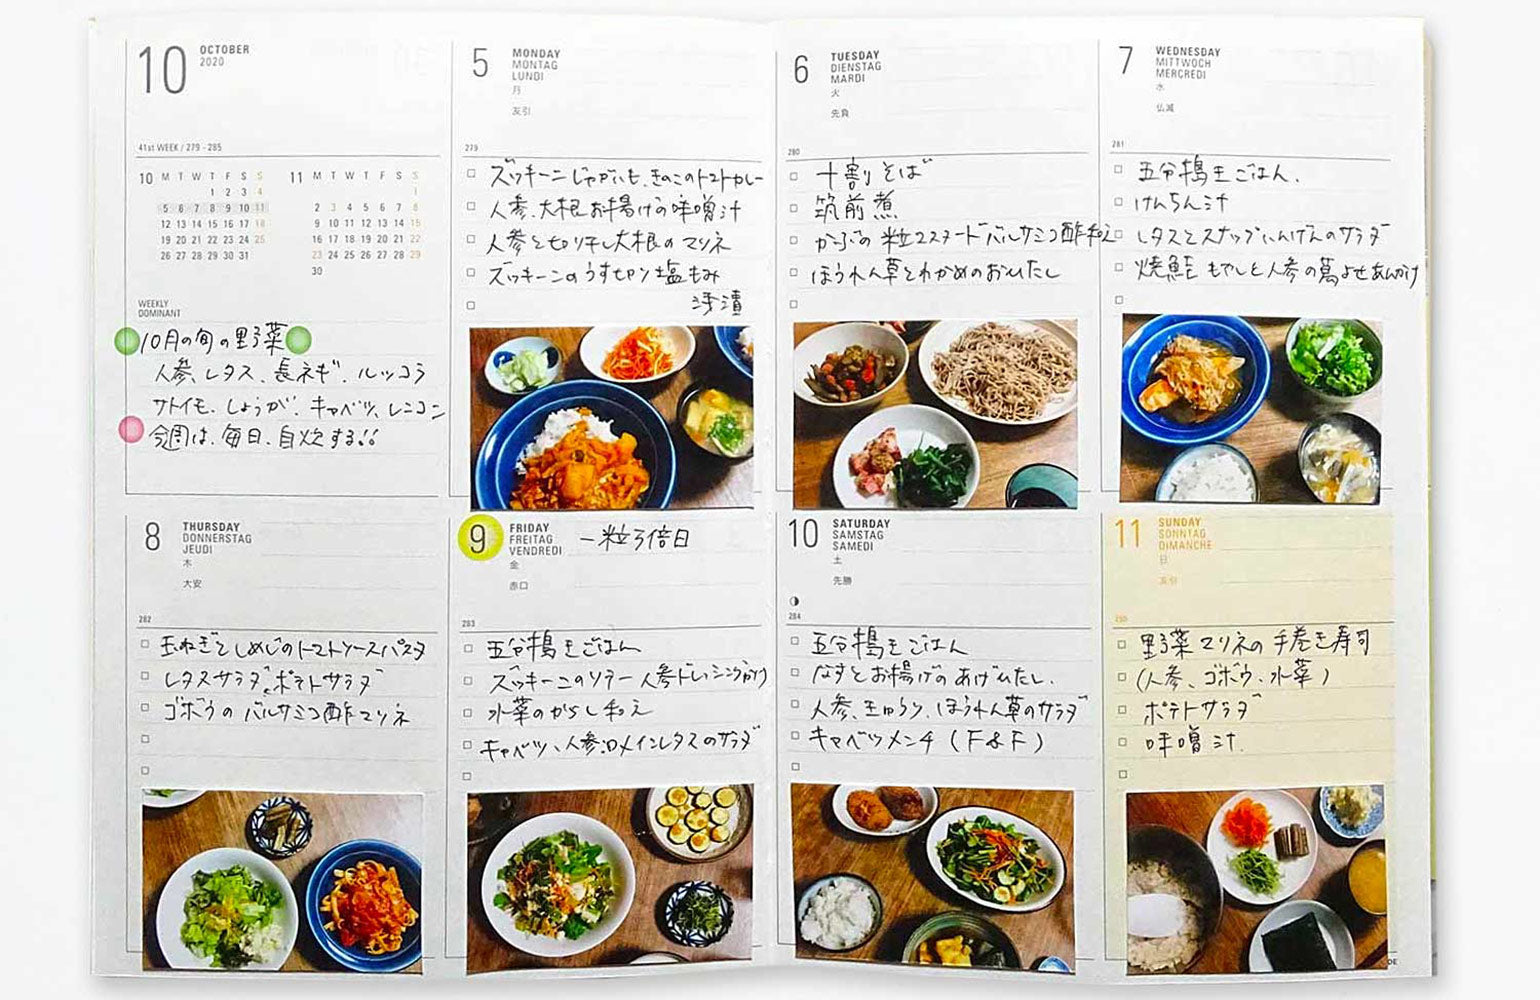 10 OCTOBER
2020
41st WEEK / 279 - 285
10 M T W T F S S
1 2 3 4
5 6 7 8 9 10 11
12 13 14 15 16 17 18
19 20 21 22 23 24 25
26 27 28 29 30 31
11 M T W T F S S
1
2 3 4 5 6 7 8
9 10 11 12 13 14 15
16 17 18 19 20 21 22
23 24 25 26 27 28 29
30
WEEKLY
DOMINANT
10月の旬の野菜
人参、レタス、長ネギ、ルッコラ
サトイモ、しょうが、キャベツ、レンコン
今週は、毎日、自炊する!!
5 MONDAY
MONTAG
LUNDI
月
友引
279
ズッキーニじゃがいも、きのこのトマトカレー
人参、大根、お揚げの味噌汁
人参と切り干し大根のマリネ
ズッキーニのうす切り塩もみ
浅漬
6 TUESDAY
DIENSTAG
MARDI
火
先負
280
十割そば
筑前煮
かぶの粒マスタードバルサミコ酢和え
ほうれん草とわかめのおひたし
7 WEDNESDAY
MITTWOCH
MERCREDI
水
仏滅
281
五分搗きごはん、
けんちん汁
レタスとスナップいんげんのサラダ
焼鮭 もやしと人参の蔦よせあんかけ
8 THURSDAY
DONNERSTAG
JEUDI
木
大安
282
玉ねぎとしめじのトマトソースパスタ
レタスサラダとポテトサラダ
ゴボウのバルサミコ酢マリネ
9 FRIDAY
FREITAG
VENDREDI
金
赤口
一粒万倍日
283
五分搗きごはん
ズッキーニのソテー人参ドレッシングがけ
水菜のからし和え
キャベツ、人参、ロメインレタスのサラダ
10 SATURDAY
SAMSTAG
SAMEDI
土
先勝
284
五分搗きごはん
なすとお揚げのあげびたし、
人参、きゅうり、ほうれん草のサラダ
キャベツメンチ (F&F)
11 SUNDAY
SONNTAG
DIMANCHE
日
友引
285
野菜マリネの手巻き寿司
(人参、ゴボウ、水菜)
ポテトサラダ
味噌汁